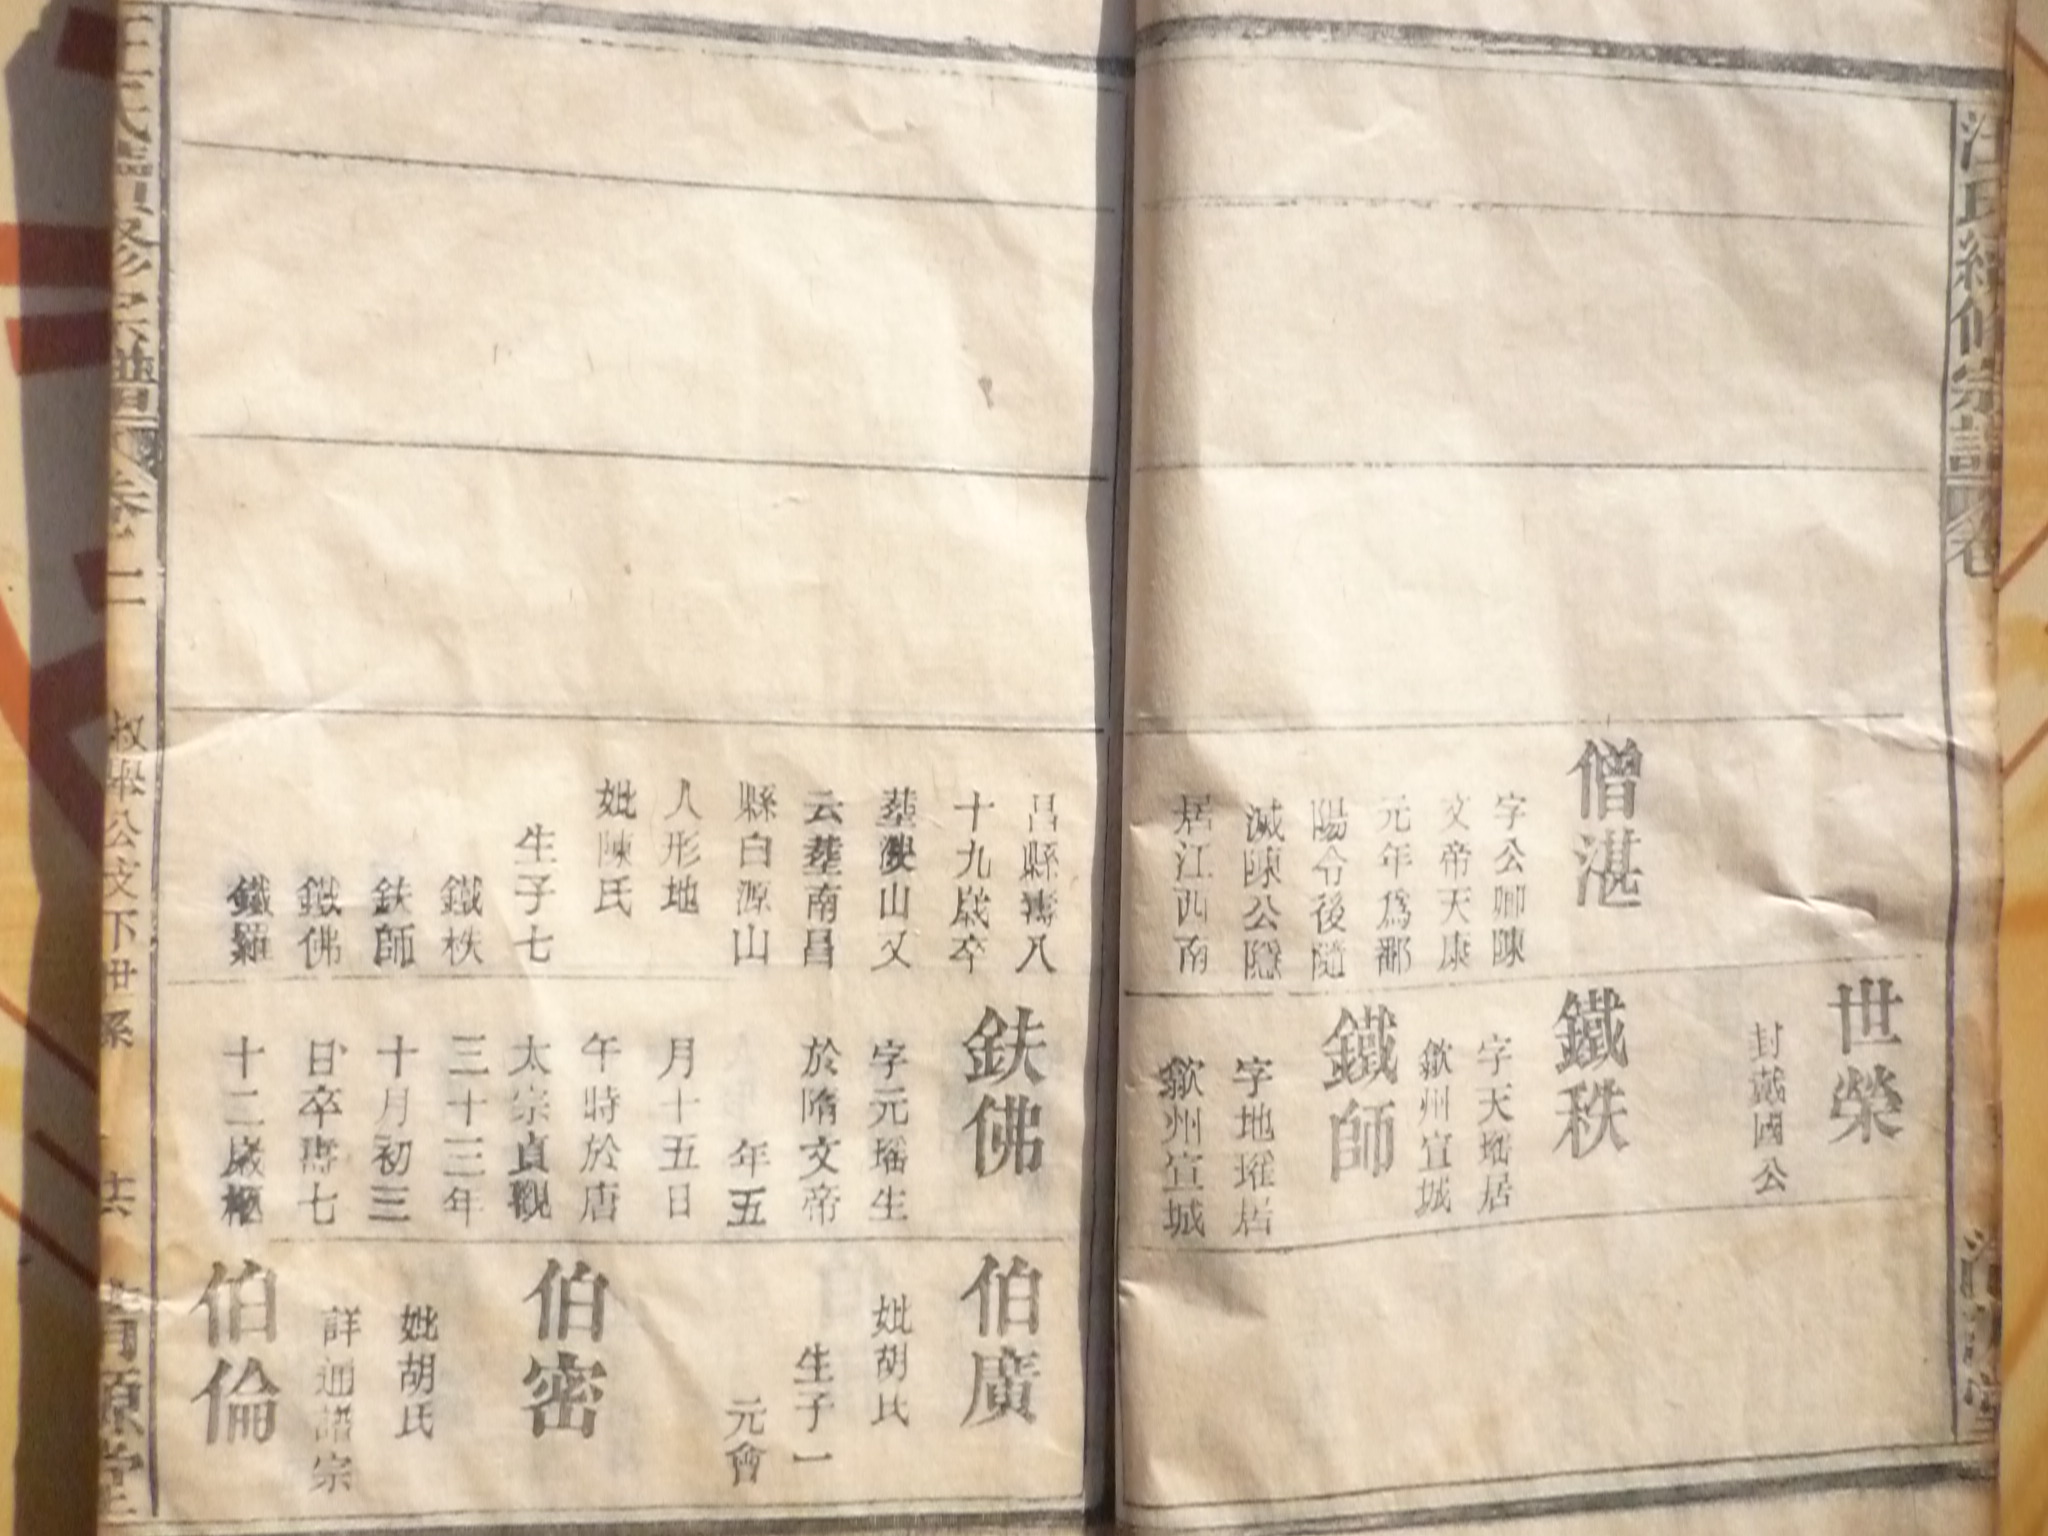 汪氏續修宗譜卷
僧湛
字公卿陳
文帝天康
元年爲鄱
陽令後隨
滅陳公隱
居江西南
世榮
封戴國公
鐵秩
字天瑤居
歙州宣城
鐵師
字地瑤居
歙州宣城
昌縣壽八
十九歲卒
山又
云葬南昌
縣白源山
人形地
妣陳氏
生子七
鐵秩
鈇師
鐵佛
鐵羅
鈇佛
字元瑤生
於隋文帝
年五
月十五日
午時於唐
太宗貞觀
三十三年
十月初三
日卒壽七
十二歲
伯廣
妣胡氏
生子一
元會
伯密
妣胡氏
詳通譜宗
伯倫
汪氏續修宗譜
卷二
叔舉公支下世系
清源堂